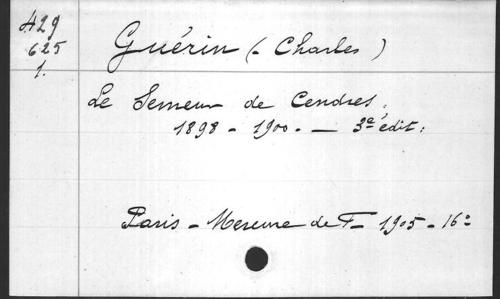 429
625
1.
Guérin (Charles)
Le Semeur de Cendres.
1898 - 1900. — 3e édit.
Paris - Mercure de F - 1905 - 16°